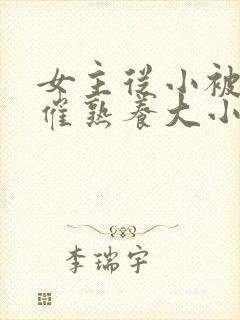 女主从小被
催熟养大小
李瑞宇